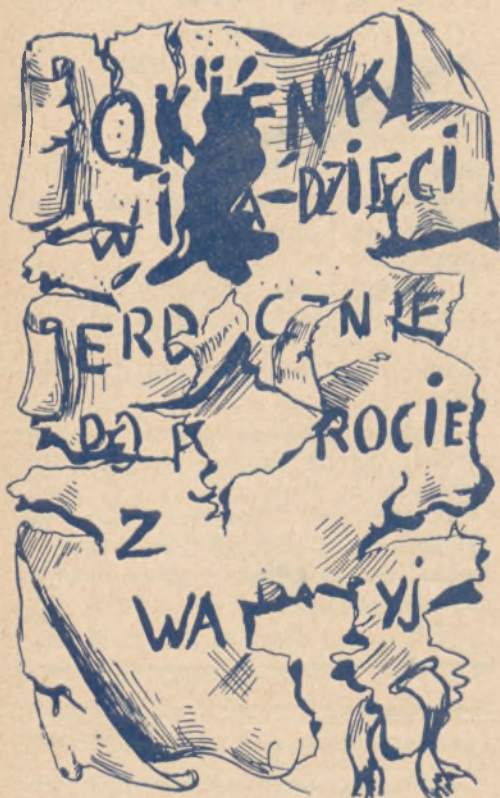 OKIENK
WI A DZIECI
ERD CZNIE
PO P ROCIE
Z
WA YJ